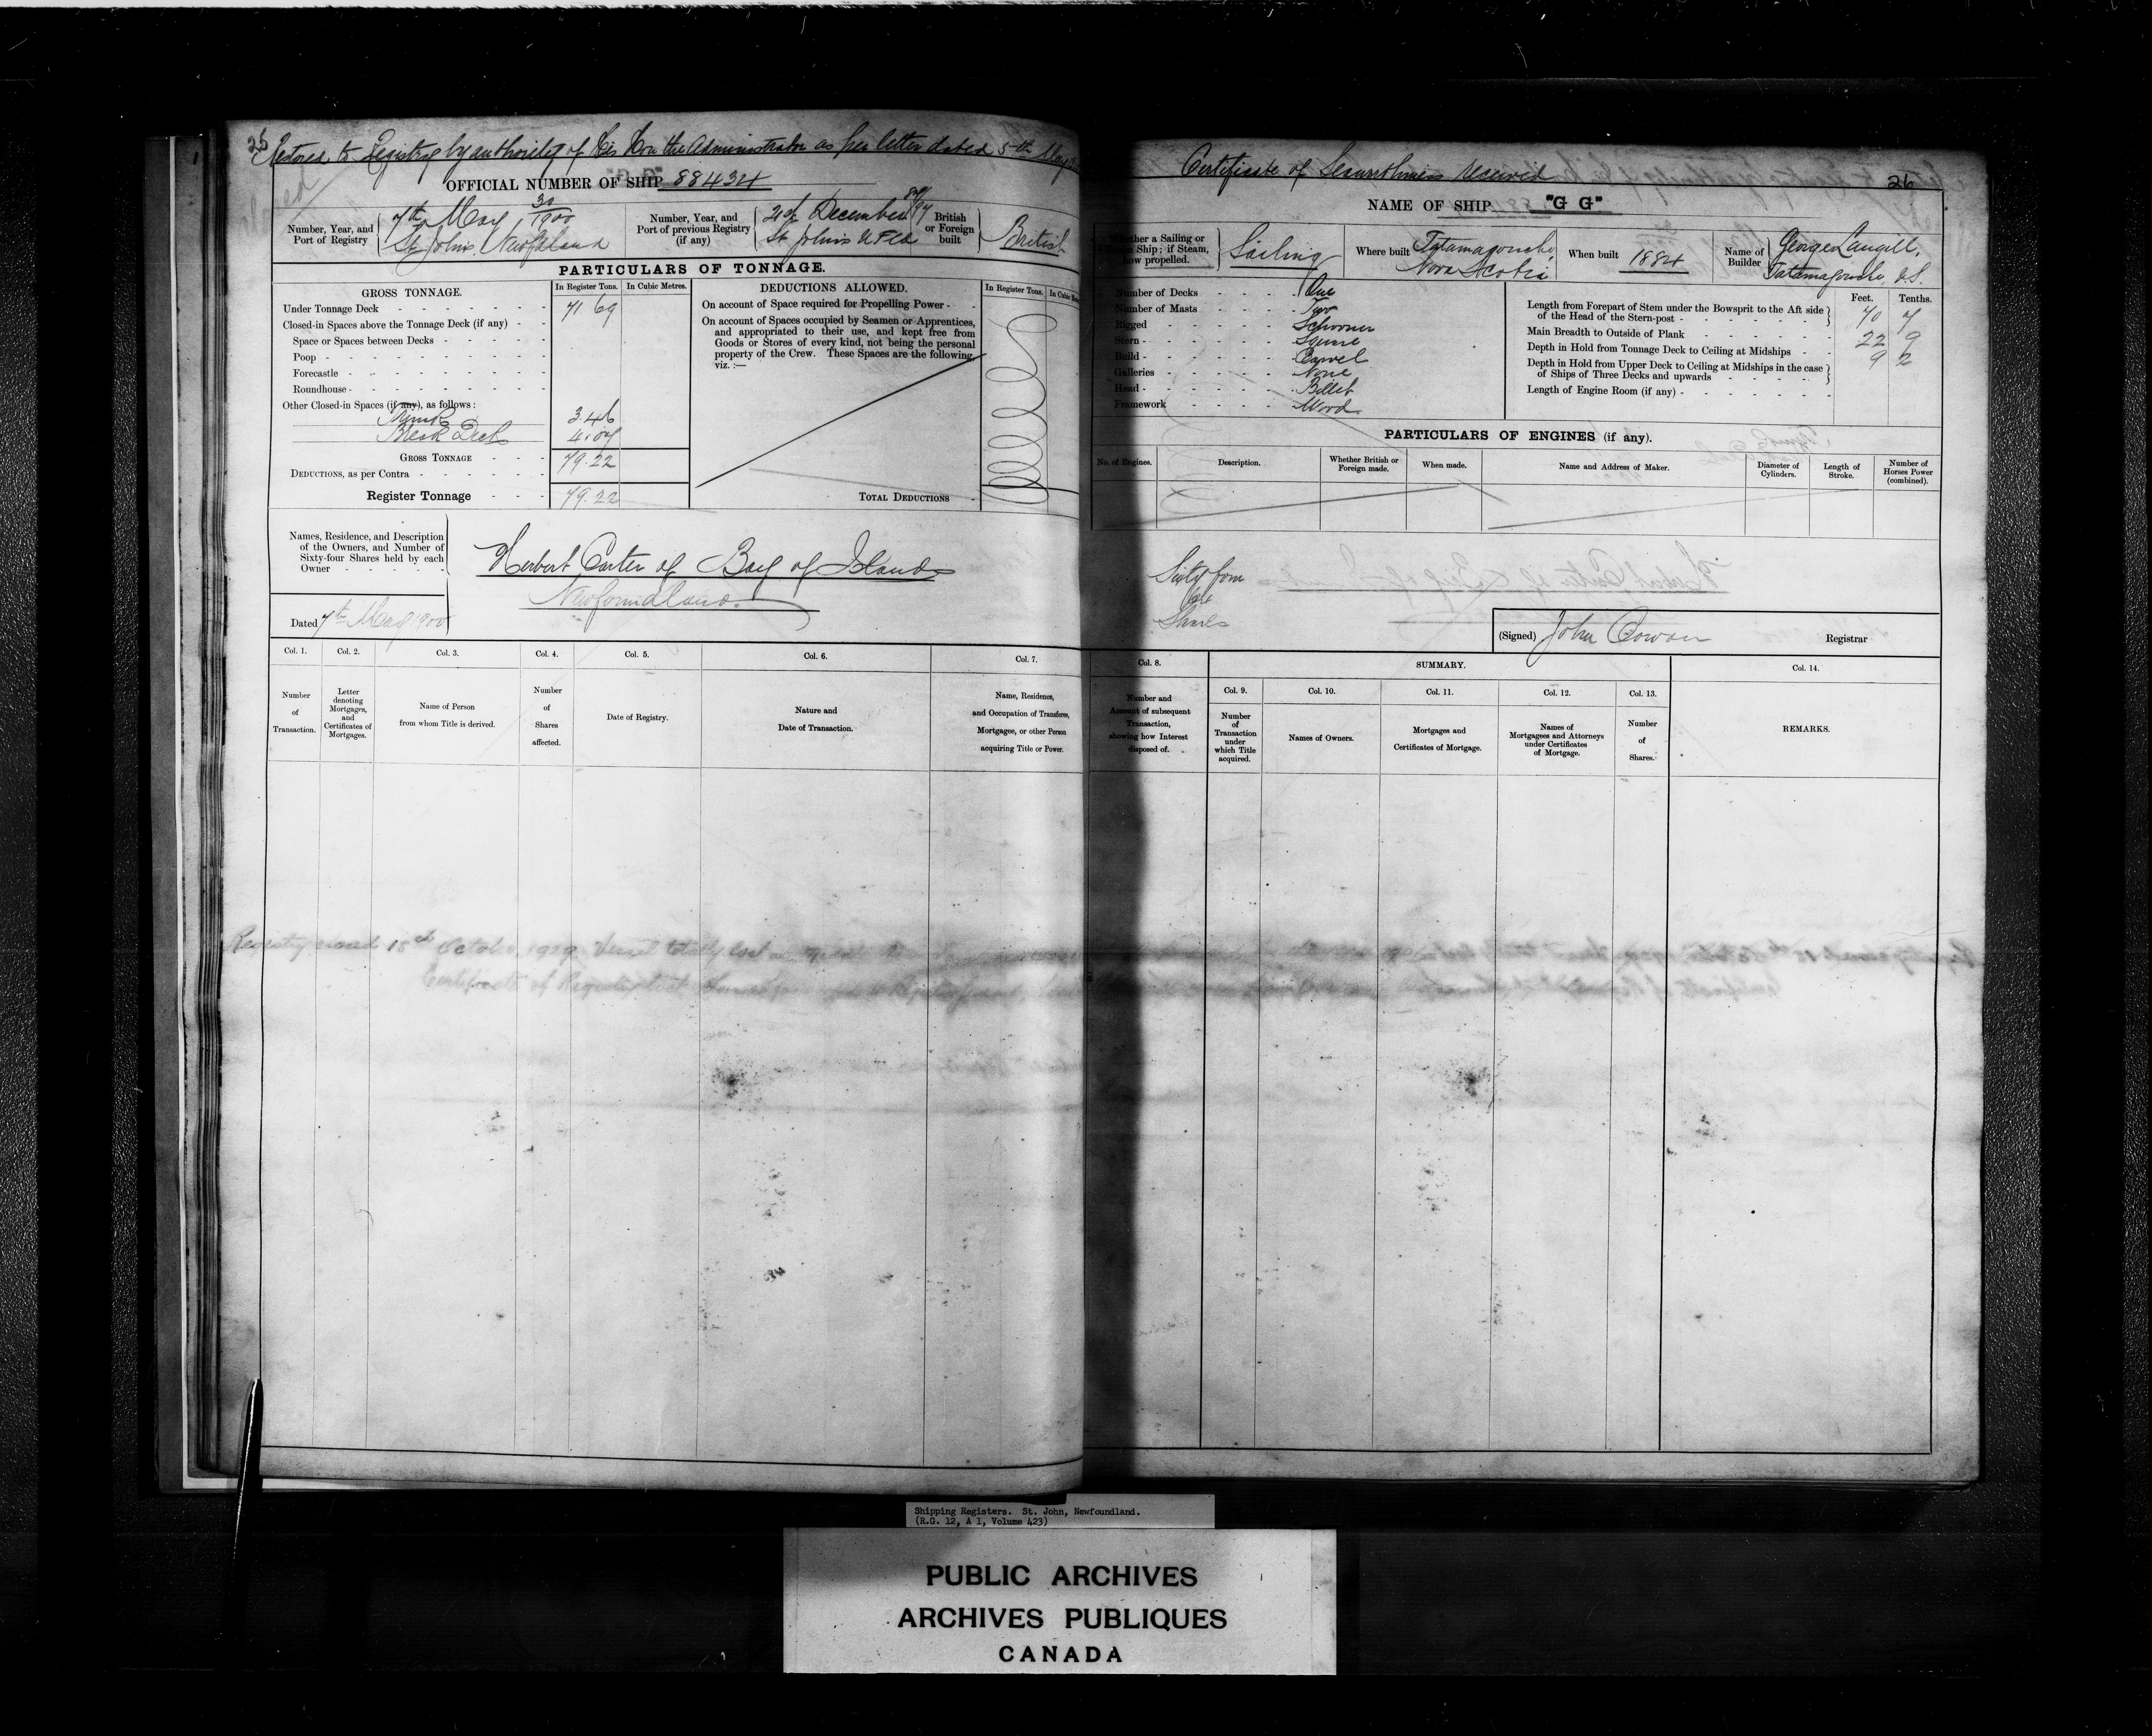 25
Restored to Registry by authority of His Hon the Administrator as per letter dated 5th May
OFFICIAL NUMBER OF SHIP 88434
Number, Year, and
Port of Registry
7th May, 30/1900
St John's, Newfoundland
Number, Year, and
Port of previous Registry
(if any)
December
St John's
British
or Foreign
built
British
PARTICULARS OF TONNAGE.
GROSS TONNAGE.
In Register Tons.
In Cubic Metres.
Under Tonnage Deck 71 69
Closed-in Spaces above the Tonnage Deck (if any)
Space or Spaces between Decks
Poop
Forecastle
Roundhouse
Other Closed-in Spaces (if any), as follows:
3.46
Break Deck 4.07
GROSS TONNAGE 79.22
DEDUCTIONS, as per Contra
Register Tonnage 79.22
DEDUCTIONS ALLOWED.
In Register Tons.
On account of Space required for Propelling Power
On account of Spaces occupied by Seamen or Apprentices,
and appropriated to their use, and kept free from
Goods or Stores of every kind, not being the personal
property of the Crew. These Spaces are the following,
viz. :—
TOTAL DEDUCTIONS
Names, Residence, and Description
of the Owners, and Number of
Sixty-four Shares held by each
Owner
Herbert Carter of Bay of Islands
Newfoundland.
Dated 7th May 1900
Col. 1.
Number
of
Transaction.
Col. 2.
Letter
denoting
Mortgages,
and
Certificates of
Mortgages.
Col. 3.
Name of Person
from whom Title is derived.
Col. 4.
Number
of
Shares
affected.
Col. 5.
Date of Registry.
Col. 6.
Nature and
Date of Transaction.
Col. 7.
Name, Residence,
and Occupation of Transferee,
Mortgagee, or other Person
acquiring Title or Power.
Registry closed 15th October 1929. Vessel totally lost
Certificate of Registry lost
Certificate of Seaworthiness received
26
NAME OF SHIP "G G"
Whether a Sailing or
Steam Ship; if Steam,
how propelled.
Sailing
Where built
Tatamagouche,
Nova Scotia
When built 1884
Name of
Builder
George Langill,
Tatamagouche, N.S.
Number of Decks One
Number of Masts Two
Rigged Schooner
Stern Square
Build Carvel
Galleries None
Head Billet
Framework Wood
Feet.
Tenths.
Length from Forepart of Stem under the Bowsprit to the Aft side
of the Head of the Stern-post 70 7
Main Breadth to Outside of Plank 22 9
Depth in Hold from Tonnage Deck to Ceiling at Midships 9 2
Depth in Hold from Upper Deck to Ceiling at Midships in the case
of Ships of Three Decks and upwards
Length of Engine Room (if any)
PARTICULARS OF ENGINES (if any).
No. of Engines.
Description.
Whether British or
Foreign made.
When made.
Name and Address of Maker.
Diameter of
Cylinders.
Length of
Stroke.
Number of
Horses Power
(combined).
Sixty four
Shares
(Signed) John Cowan Registrar
Col. 8.
Number and
Amount of subsequent
Transaction,
showing how Interest
disposed of.
SUMMARY.
Col. 9.
Number
of
Transaction
under
which Title
acquired.
Col. 10.
Names of Owners.
Col. 11.
Mortgages and
Certificates of Mortgage.
Col. 12.
Names of
Mortgagees and Attorneys
under Certificates
of Mortgage.
Col. 13.
Number
of
Shares.
Col. 14.
REMARKS.
Shipping Registers. St. John, Newfoundland.
(R.G. 12, A 1, Volume 423)
PUBLIC ARCHIVES
ARCHIVES PUBLIQUES
CANADA